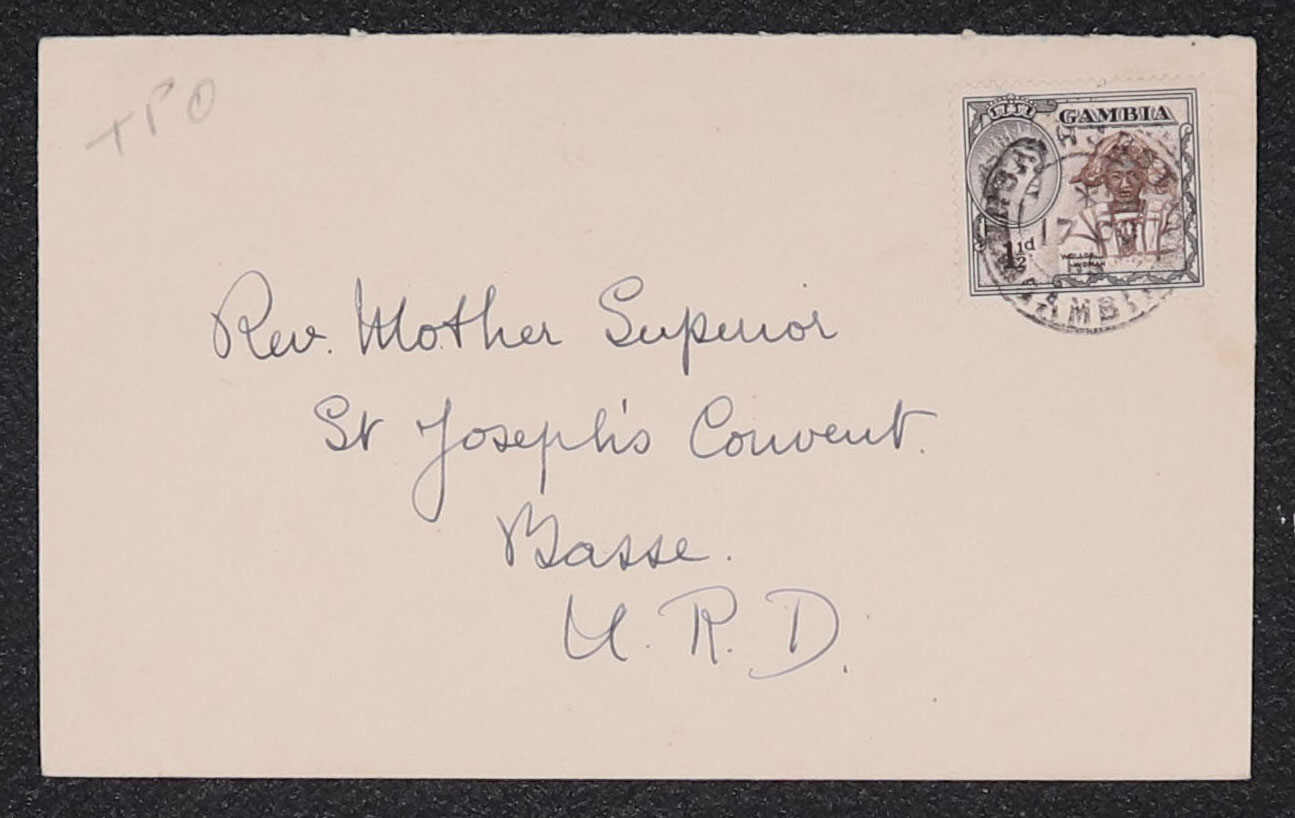 TPO
GAMBIA
1½d
WOLLOF
WOMAN
GAMBIA
Rev. Mother Superior
St Joseph's Convent.
Basse.
U.R.D.